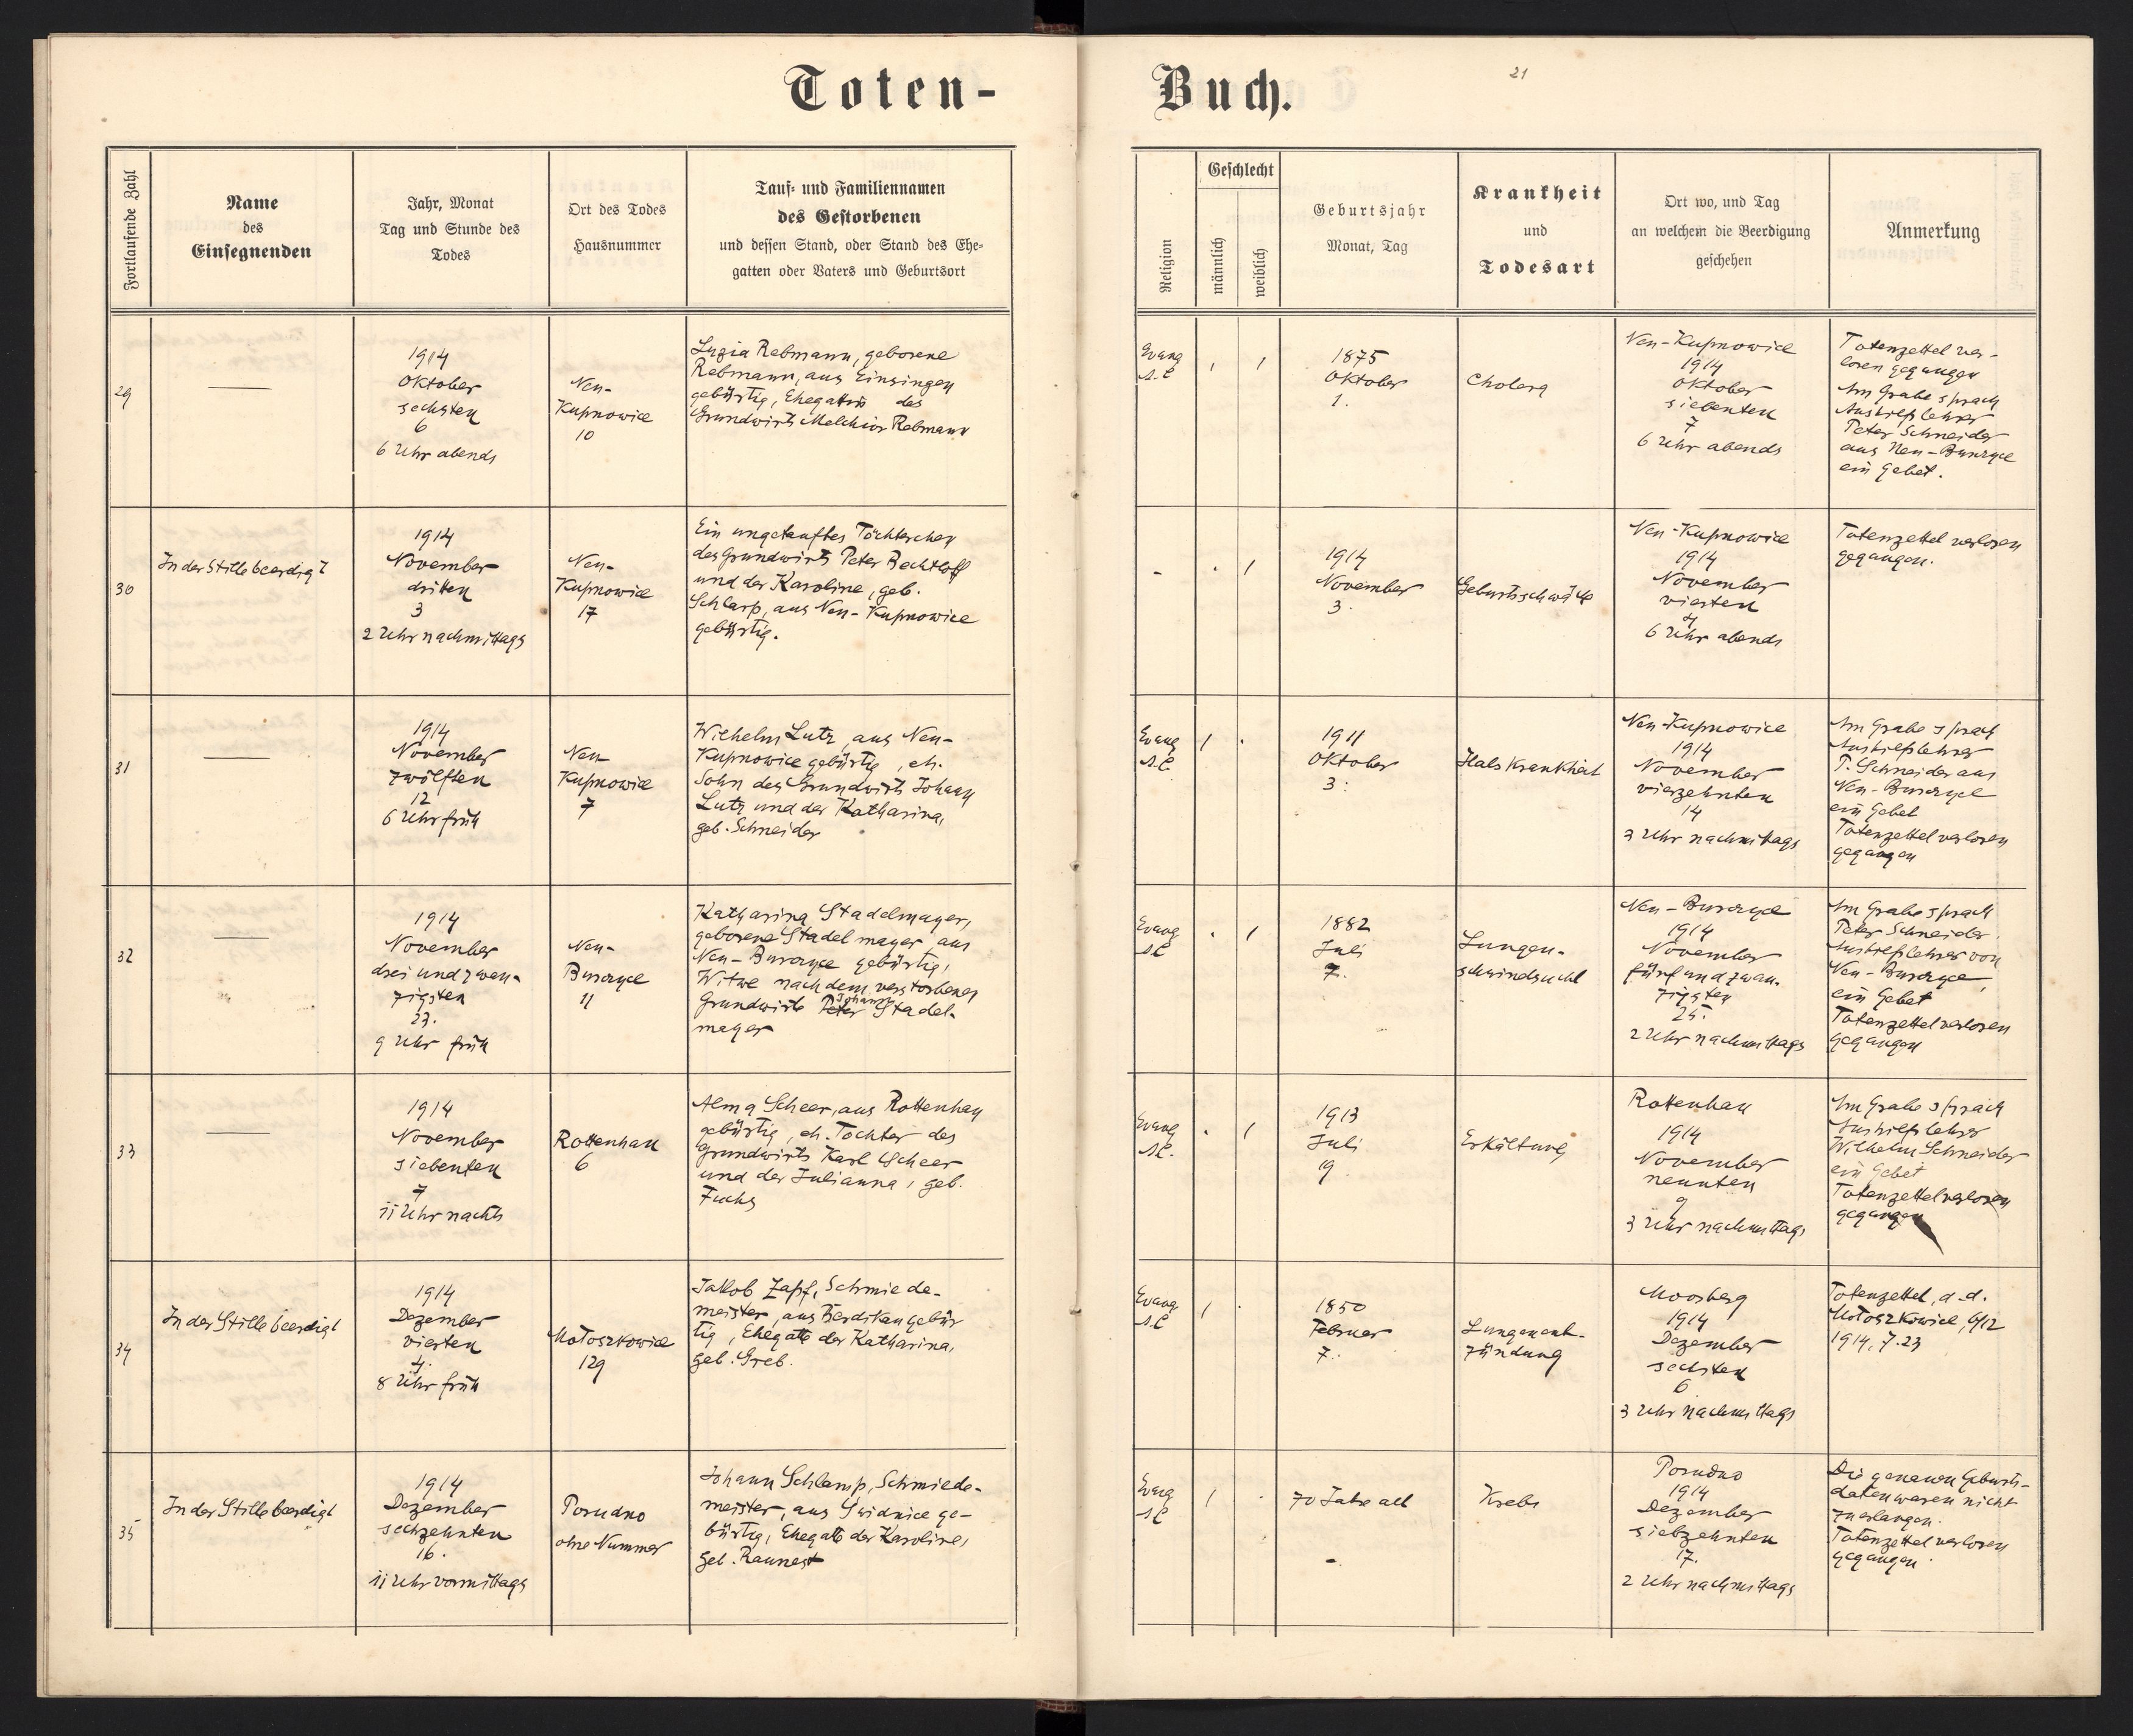 Toten-
Buch.
21
Fortlaufende Zahl
Name
des
Einsegnenden
Jahr, Monat
Tag und Stunde des
Todes
Ort des Todes
Hausnummer
Tauf- und Familiennamen
des Gestorbenen
und dessen Stand, oder Stand des Ehe-
gatten oder Vaters und Geburtsort
Religion
Geschlecht
männlich
weiblich
Geburtsjahr
Monat, Tag
Krankheit
und
Todesart
Ort wo, und Tag
an welchem die Beerdigung
geschehen
Anmerkung
29
1914
Oktober
sechsten
6
6 Uhr abends
Neu-
Kupnowice
10
Luzia Rebmann, geborene
Rebmann, aus Einsingen
gebürtig, Ehegattin des
Grundwirts Melchior Rebmann
Evang
A.C
1
1875
Oktober
1.
Cholera
Neu-Kupnowice
1914
Oktober
siebenten
7
6 Uhr abends
Totenzettel ver-
loren gegangen
Am Grabe sprach
Aushilfslehrer
Peter Schneider
aus Neu-Burczyce
ein Gebet.
30
In der Stille beerdigt
1914
November
dritten
3
2 Uhr nachmittags
Neu-
Kupnowice
17
Ein ungetauftes Töchterchen
des Grundwirts Peter Bechtloff
und der Karoline, geb.
Schlarp, aus Neu-Kupnowice
gebürtig.
1
1914
November
3.
Geburtsschwäche
Neu-Kupnowice
1914
November
vierten
4
6 Uhr abends
Totenzettel verloren
gegangen.
31
1914
November
zwölften
12
6 Uhr früh
Neu-
Kupnowice
7
Wilhelm Lutz, aus Neu-
Kupnowice gebürtig, eh.
Sohn des Grundwirts Johann
Lutz und der Katharina,
geb. Schneider
Evang
A.C.
1
1911
Oktober
3.
Halskrankheit
Neu-Kupnowice
1914
November
vierzehnten
14
3 Uhr nachmittags
Am Grabe sprach
Aushilfslehrer
P. Schneider aus
Neu-Burczyce
ein Gebet
Totenzettel verloren
gegangen
32
1914
November
drei und zwan-
zigsten
23.
9 Uhr früh
Neu-
Burczyce
11
Katharina Stadelmayer,
geborene Stadelmayer, aus
Neu-Burczyce gebürtig,
Witwe nach dem verstorbenen
Johann
Grundwirte Peter Stadel-
mayer
Evang
A.C
1
1882
Juli
7.
Lungen-
schwindsucht
Neu-Burczyce
1914
November
fünf und zwan-
zigsten
25.
2 Uhr nachmittags
Am Grabe sprach
Peter Schneider
Aushilfslehrer von
Neu-Burczyce,
ein Gebet
Totenzettel verloren
gegangen
33
1914
November
siebenten
7
11 Uhr nachts
Rottenhan
6
Alma Scheer, aus Rottenhan
gebürtig, eh. Tochter des
Grundwirts Karl Scheer
und der Julianna, geb.
Fuchs
Evang
A.C.
1
1913
Juli
19
Erkältung
Rottenhan
1914
November
neunten
9
3 Uhr nachmittags
Am Grabe sprach
Aushilfslehrer
Wilhelm Schneider
ein Gebet
Totenzettel verloren
gegangen
34
In der Stille beerdigt
1914
Dezember
vierten
4.
8 Uhr früh
Małoszkowice
129
Jakob Zapf, Schmiede-
meister, aus Berdikau gebür
tig, Ehegatte der Katharina,
geb. Greb.
Evang
A.C
1
1850
Februar
7.
Lungenent-
zündung
Moosberg
1914
Dezember
sechsten
6
3 Uhr nachmittags
Totenzettel, d.d.
Małoszkowice, 6/12
1914, Z. 23
35
In der Stille beerdigt
1914
Dezember
sechzehnten
16.
11 Uhr vormittags
Porudno
ohne Nummer
Johann Schlamp, Schmiede-
meister, aus Swidnice ge-
bürtig, Ehegatte der Karoline,
geb.
Evang
A.C
1
70 Jahre alt
Krebs
Porudno
1914
Dezember
siebzehnten
17.
2 Uhr nachmittags
Die genauen Geburts-
daten waren nicht
zu erlangen.
Totenzettel verloren
gegangen